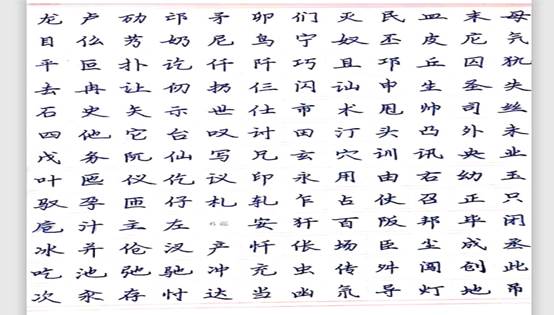 龙 卢 劢 邙 矛 卯 们 灭 民 皿 末 母
目 仫 艻 奶 尼 鸟 宁 奴 丕 皮 尼 气
平 叵 扑 讫 仟 阡 巧 且 邛 丘 囚 犰
去 冉 让 仞 扔 仨 闪 讪 申 生 圣 失
石 史 矢 示 世 仕 市 术 甩 帅 司 丝
四 他 它 台 叹 讨 田 汀 头 凸 外 未
戊 务 阢 仙 写 兄 玄 穴 训 讯 央 业
叶 匜 仪 仡 议 印 永 用 由 右 幼 玉
驭 孕 匝 仔 札 轧 乍 占 仗 召 正 只
卮 汁 主 左 安 犴 百 阪 邦 毕 闭
冰 并 伧 汊 产 忏 伥 场 臣 尘 成 丞
吃 池 弛 驰 冲 充 虫 传 舛 闯 创 此
次 汆 存 忖 达 当 凼 氘 导 灯 地 吊